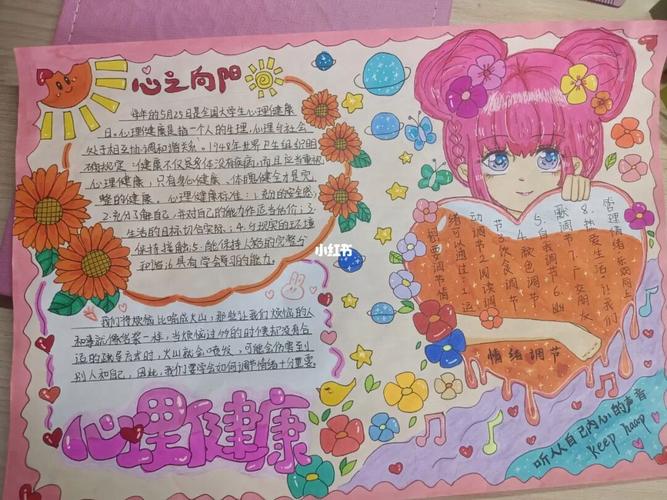 心之向阳
每年的5月25日是全国大学生心理健康
日。心理健康是指一个人的生理、心理与社会
处于相互协调和谐关系。1948年世界卫生组织明
确规定:健康不仅是身体没有疾病,而且应当重视
心理健康,只有身心健康、体魄健全才是完
整的健康。心理健康标准:1.充分的安全感;
2.充分了解自己,并对自己的能力作适当估价;3.
生活的目标切合实际;4.与现实的环境
保持接触;5.能保持人格的完整
和谐;6.具有学会学习的能力。
小红书
我们将烦恼比喻成火山,那些让我们烦恼的人
和事就像岩浆一样,当烦恼过多的时候却没有合
适的疏导方法时,火山就会喷发,可能会伤害到
别人和自己,因此,我们要学会如何调节情绪十分重要
心理健康
管理情绪
8.热爱生活
7.广交朋友
歌调节
5.自我调节 6.幽
4.颜色调节
节 3.饮食调节
动调节 2.阅读调
绪可以通过:1.运
想要调节情
情绪调节
听从自己内心的声音
Keep